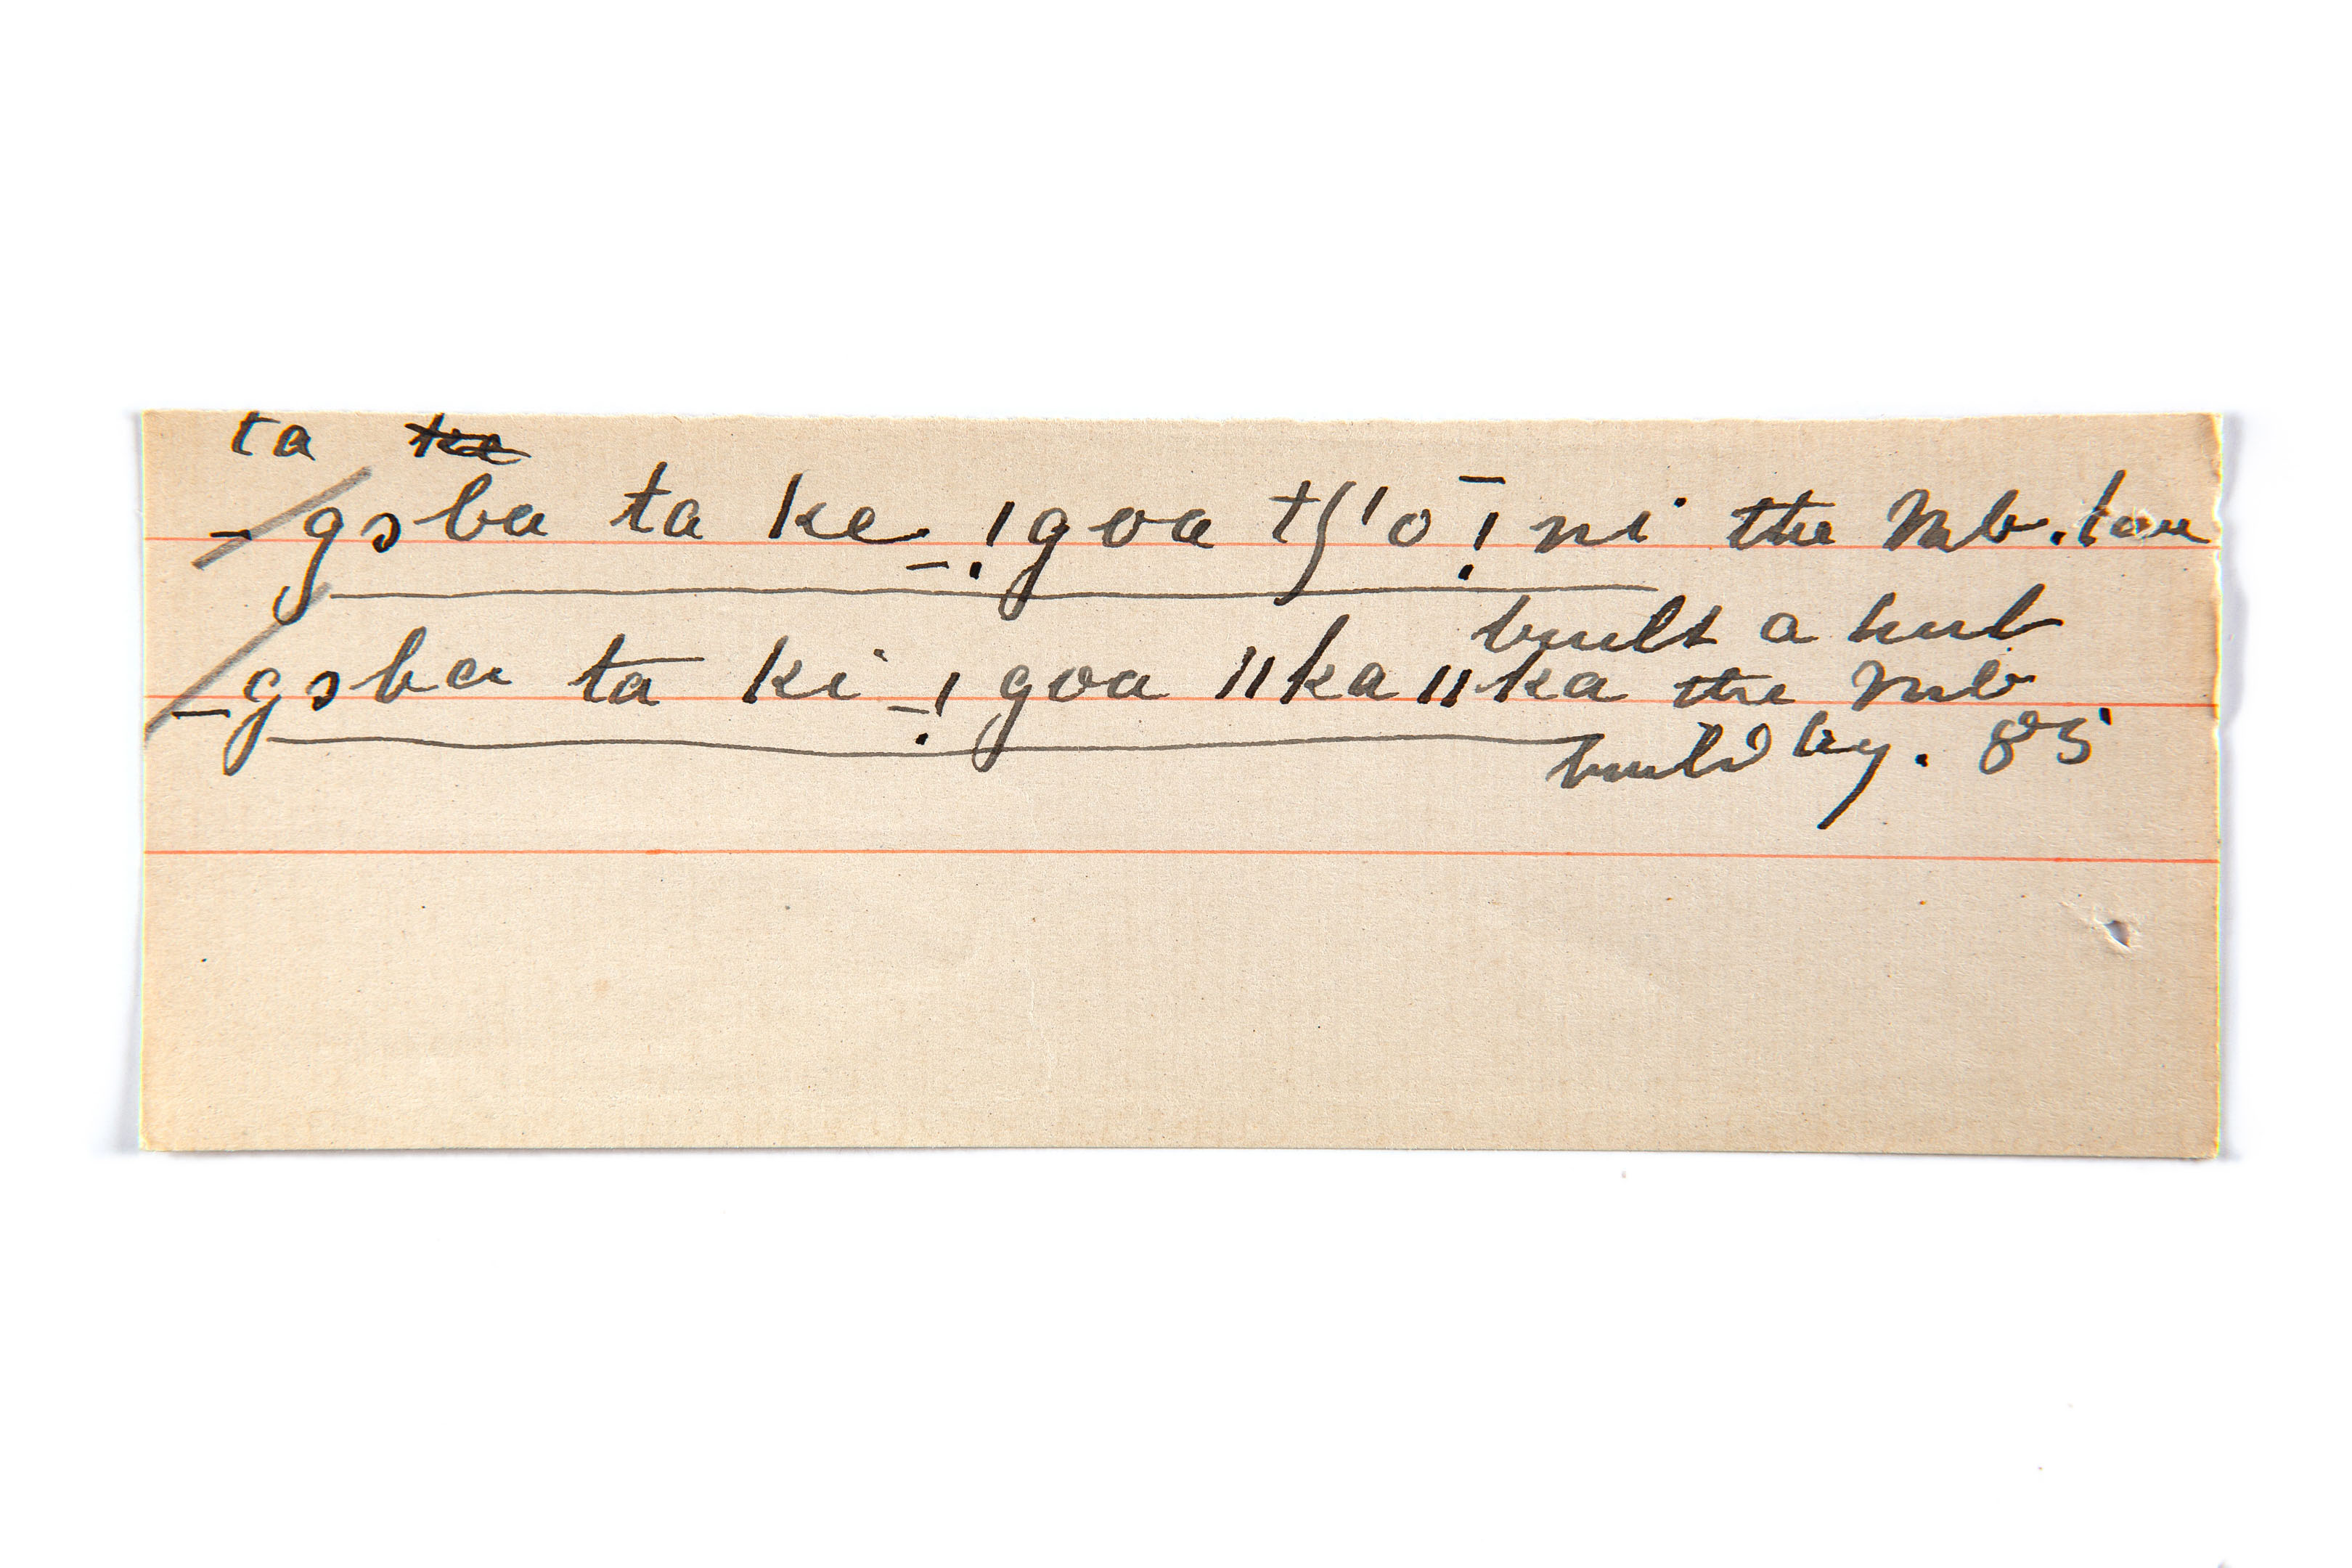 ta ke
_gɔba ta ke _!goa tʃ'o !̄ni the Mb. tou
built a hut
_gɔba ta ki _!goa ǁkaǁka the Mb
build by. 85